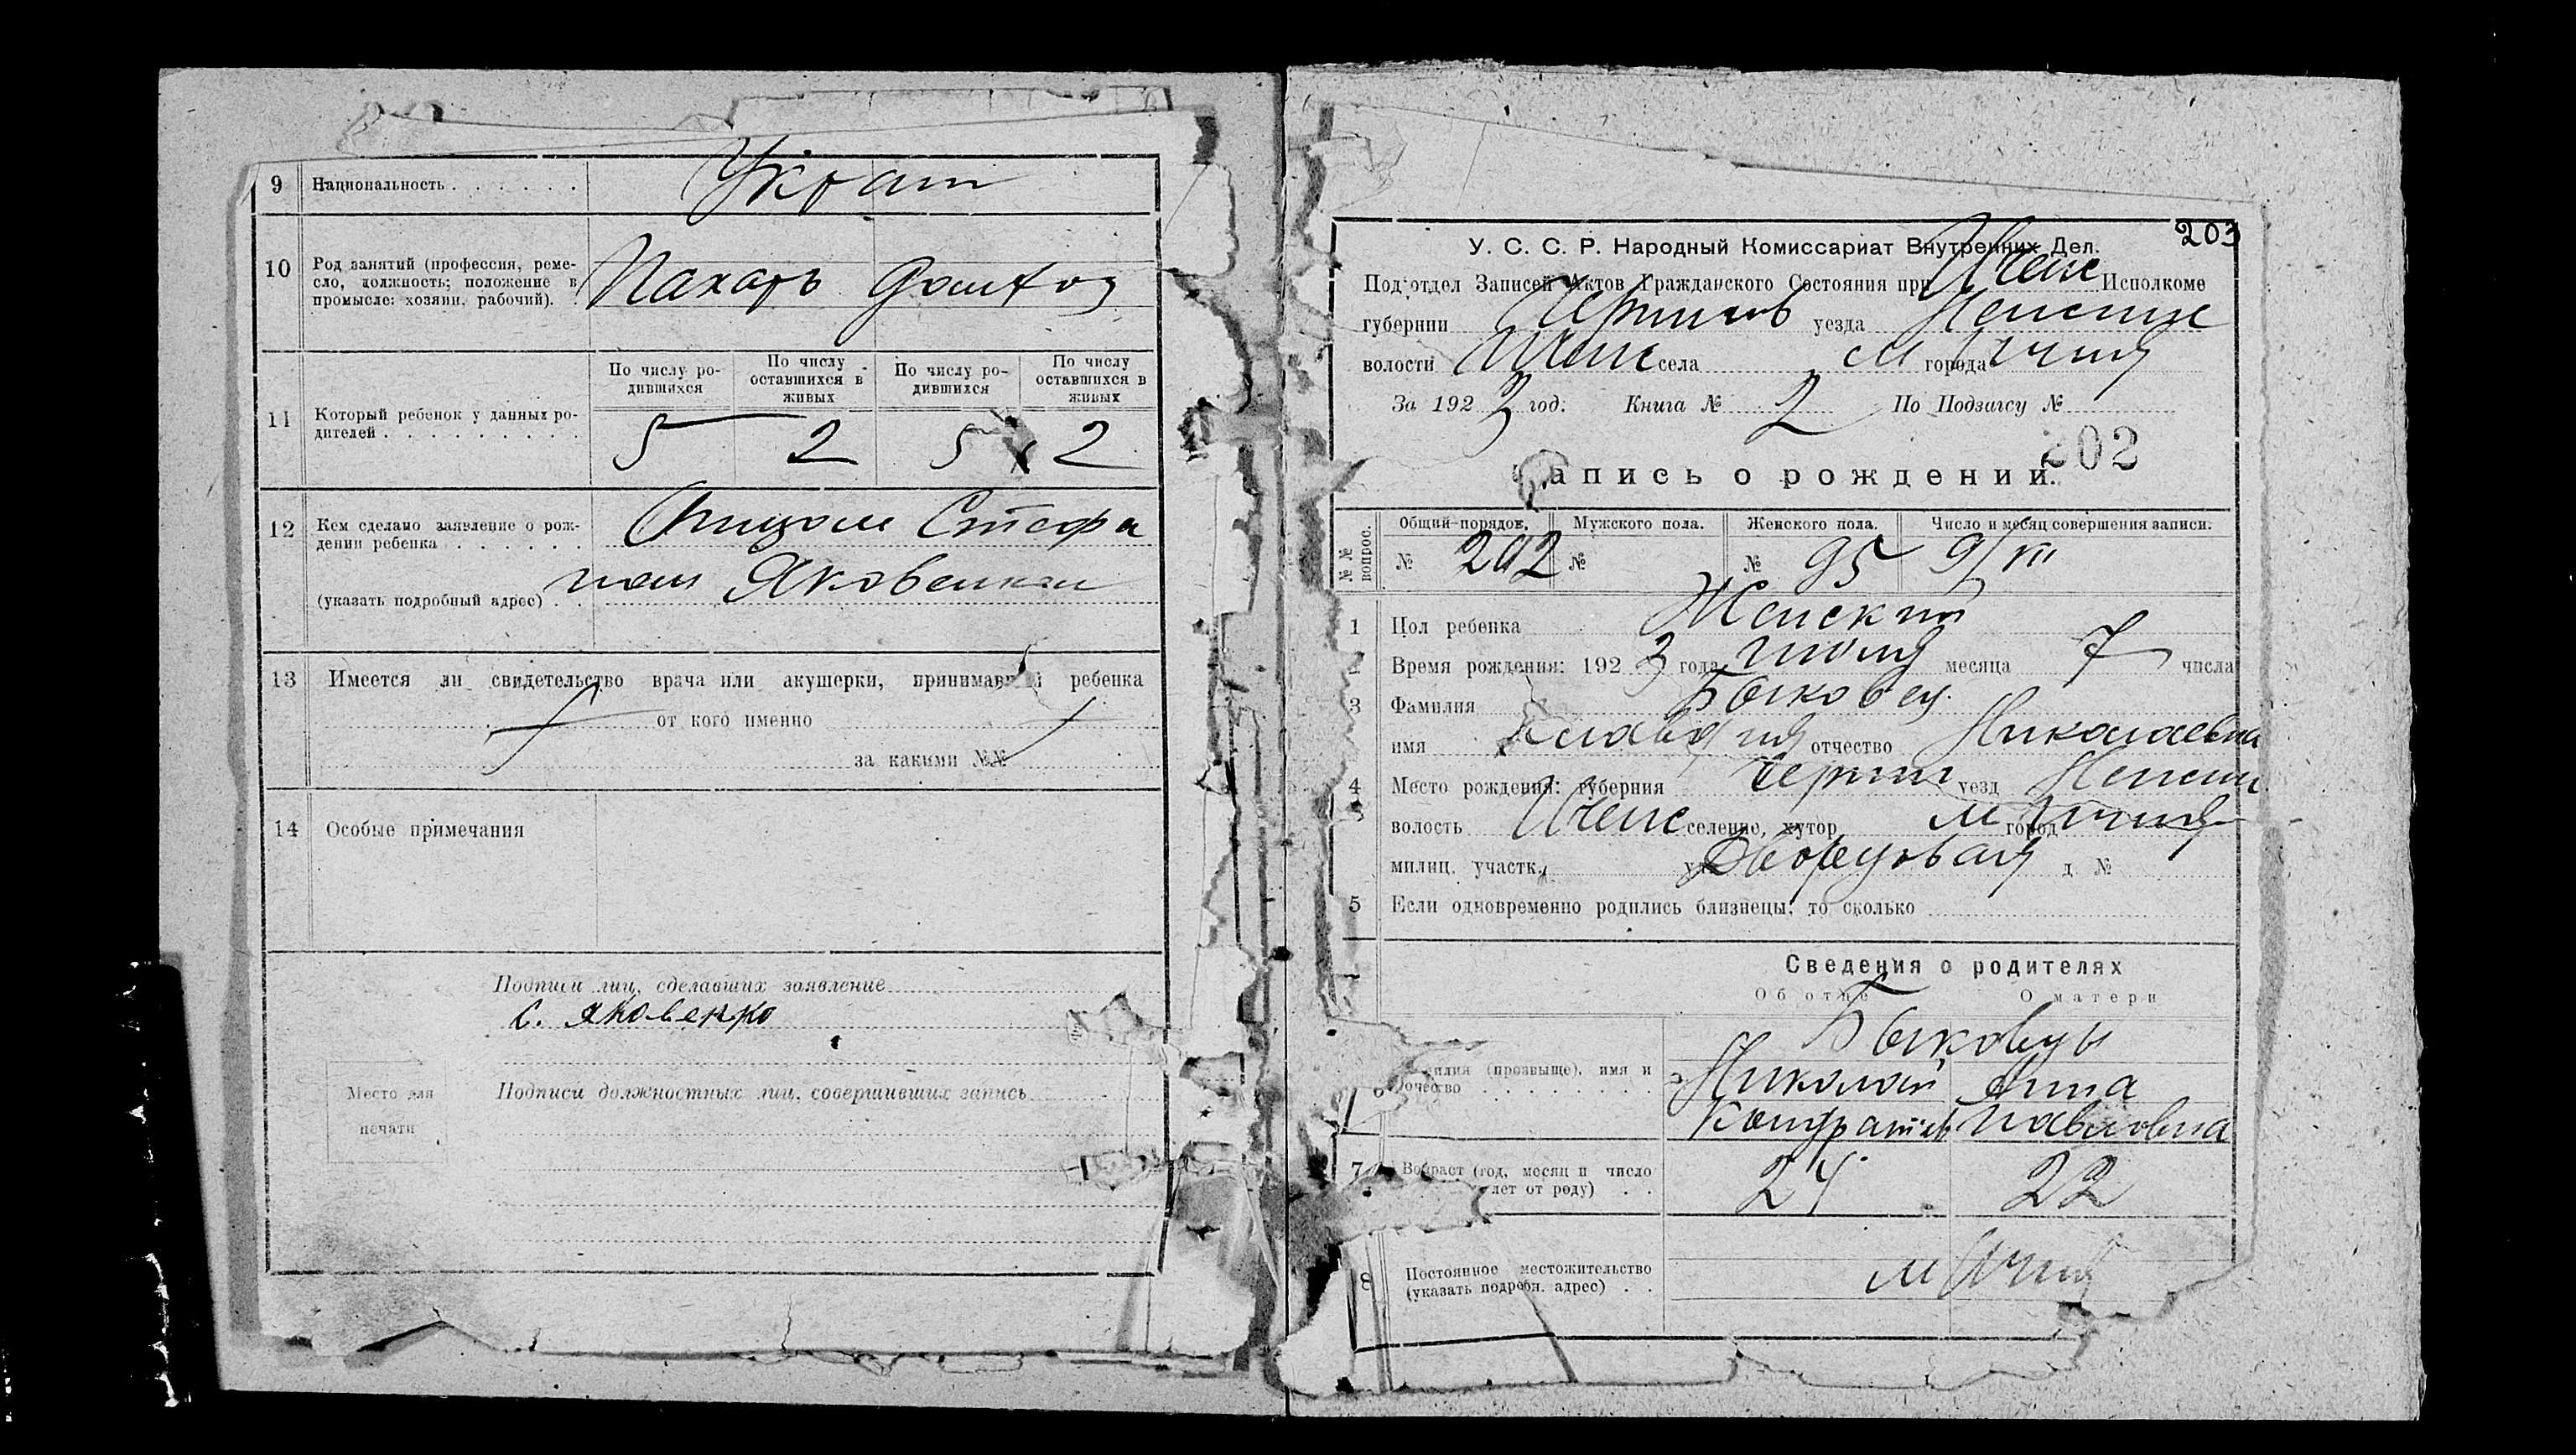 9 Национальность . . . . . . Украин
10 Род занятий (профессия, реме-
сло, должность; положение в
промысле: хозяин, рабочий). Пахарь Домхоз
По числу ро-
дившихся
По числу
оставшихся в
живых
По числу ро-
дившихся
По числу
оставшихся в
живых
11 Который ребенок у данных ро-
дителей . . . . . . . . . .
5 2 5 2
12 Кем сделано заявление о рож-
дении ребенка . . . . . . Стефа
(указать подробный адрес) . . ном Яковенком
13 Имеется ли свидетельство врача или акушерки, ребенка
от кого именно
за какими №№
14 Особые примечания
Подписи лиц, сделавших заявление
С. Яковенко
Место для
печати
Подписи должностных лиц, совершивших запись
203
У. С. С. Р. Народный Комиссариат Внутренних Дел.
Подотдел Записей Актов Гражданского Состояния при Ичен Исполкоме
губернии Чернигов уезда Неженск
волости Ичен села м города Ичня
За 192 3 год. Книга № 2 По Подзагсу №
202
апись о рождении.
№№ вопрос.
Общий порядок. Мужского пола. Женского пола. Число и месяц совершения записи.
№ 202 № № 95 9/VII
1 Пол ребенка Женский
2 Время рождения: 192 3 года июля месяца 7 числа
3 Фамилия Быковец
имя Клавдия отчество Николаевна
4 Место рождения: губерния Черниг уезд Нежин
волость Ичен селение, хутор м город Ичня
милиц. участк. ул. Дворцовая д №
5 Если одновременно родились близнецы, то сколько
Сведения о родителях
Об отце О матери
Быковцы
6 (прозвище), имя и Николай Анна
Кондратьев Павловна
7 Возраст (год, месяц и число
лет от роду) . . 24 22
8 Постоянное местожительство
(указать подробн. адрес) . . м Ичня